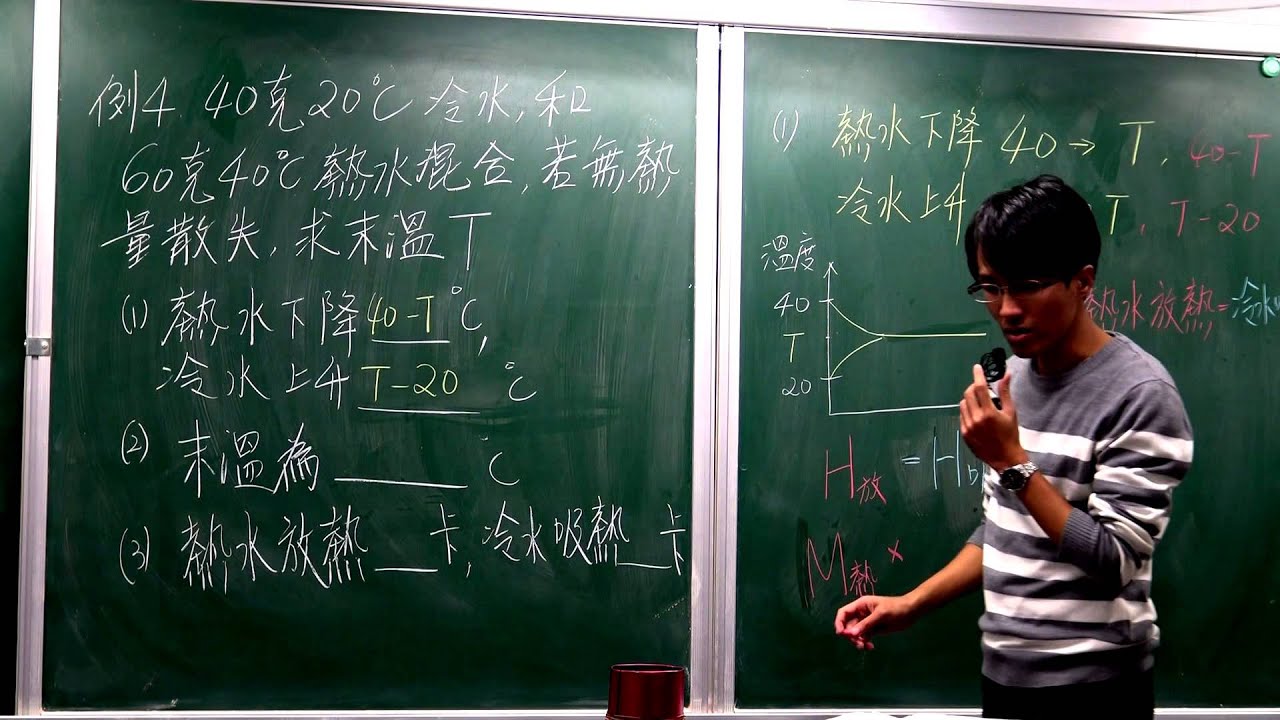 例4. 40克20℃冷水,和
60克40℃熱水混合,若無熱
量散失,求末溫T
(1) 熱水下降40-T℃,
冷水上升T-20℃
(2) 末溫為____℃
(3) 熱水放熱__卡,冷水吸熱__卡
(1) 熱水下降 40→T, 40-T
冷水上升 T, T-20
溫度
40
T
20
熱水放熱=冷水
H放 = H
M熱 ×